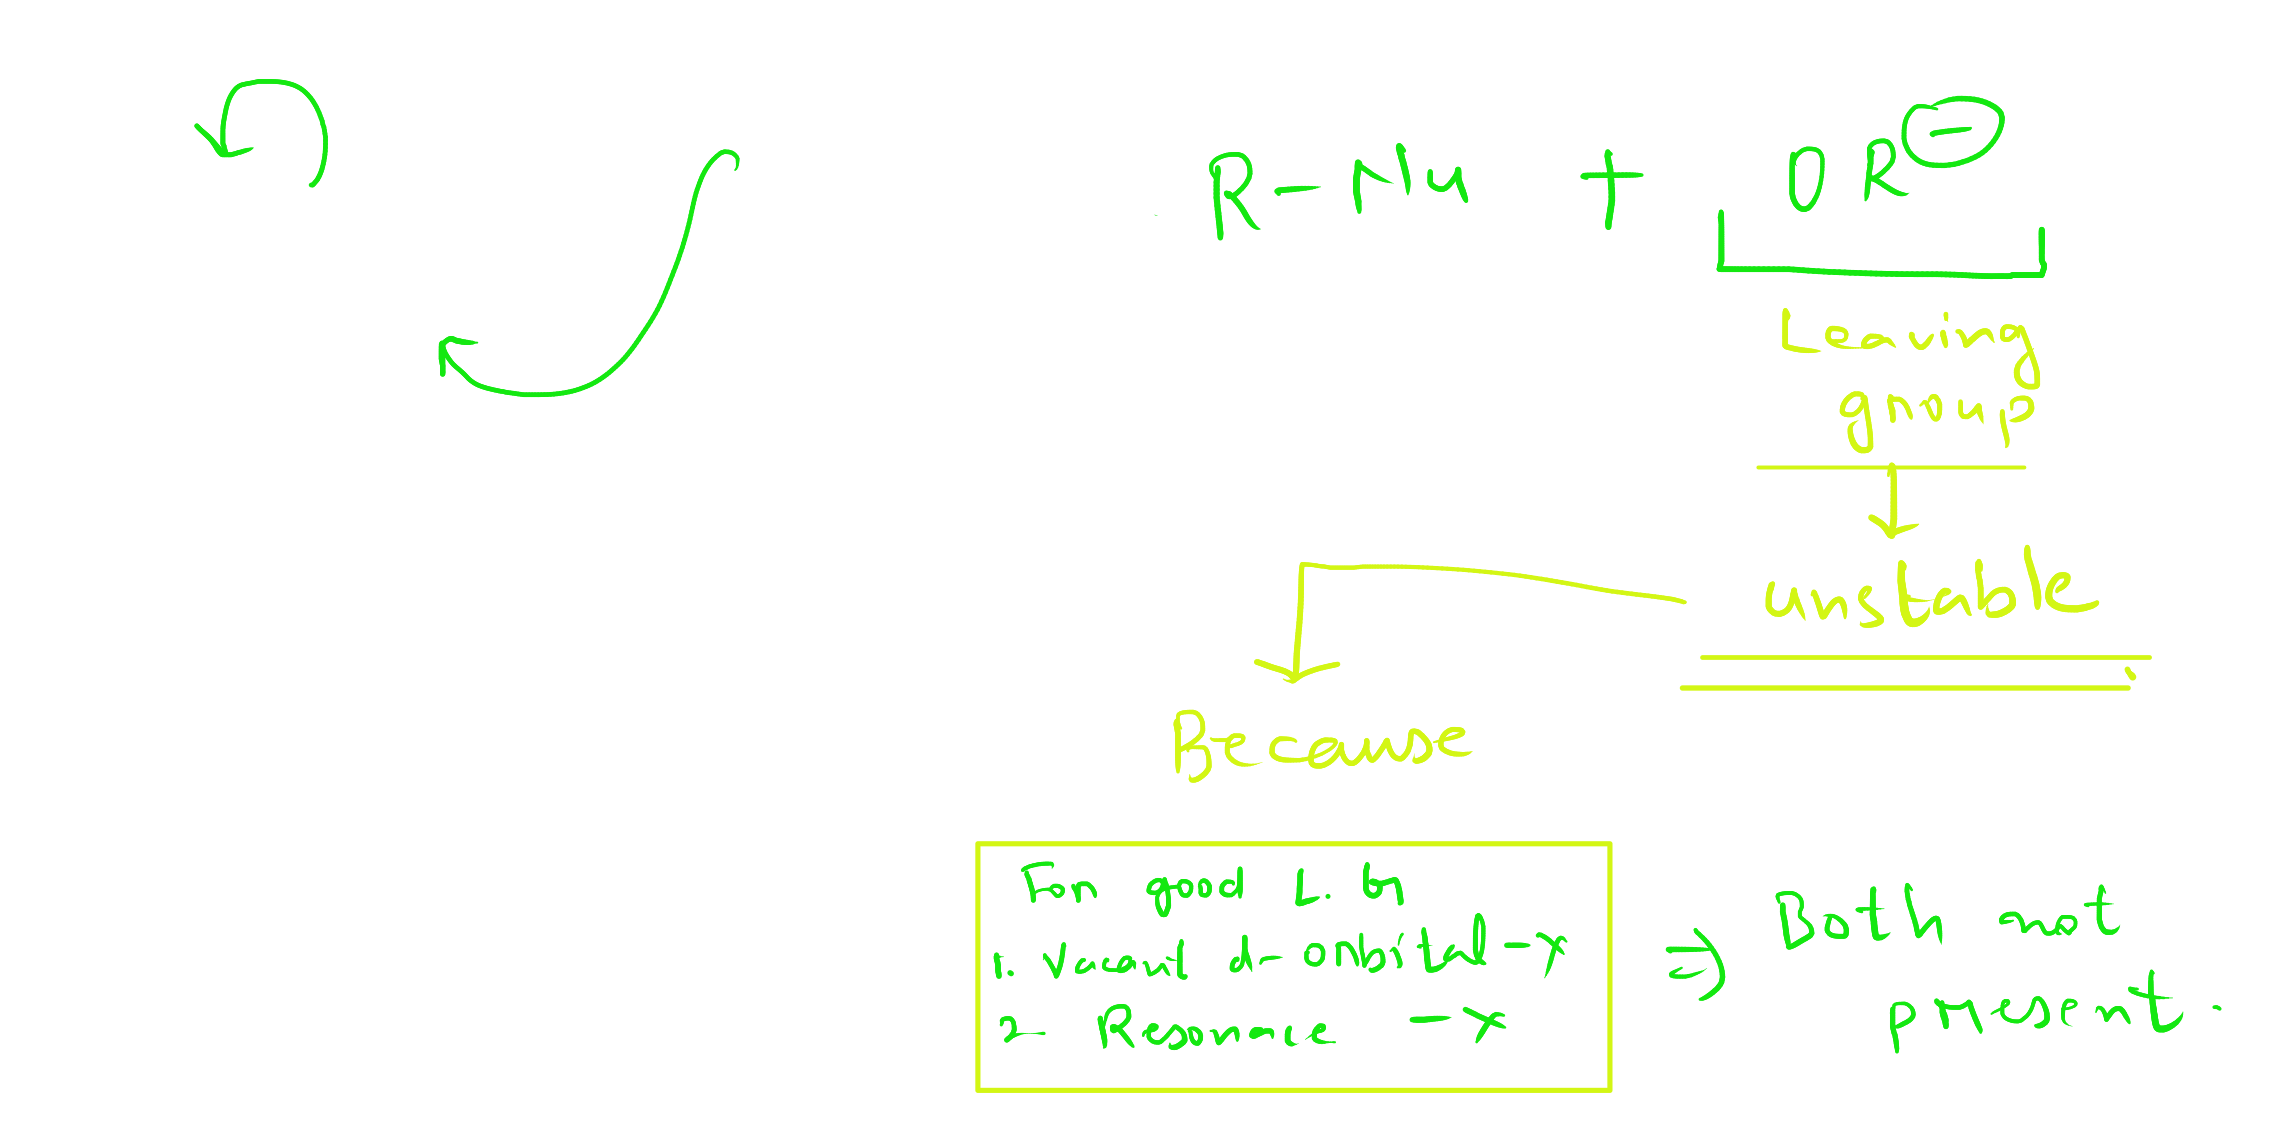 R - Nu + OR⊖
Leaving
group
unstable
Because
For good L. G
1. Vacant d- orbital - x
2 Resonace - x
⇒ Both not
present.